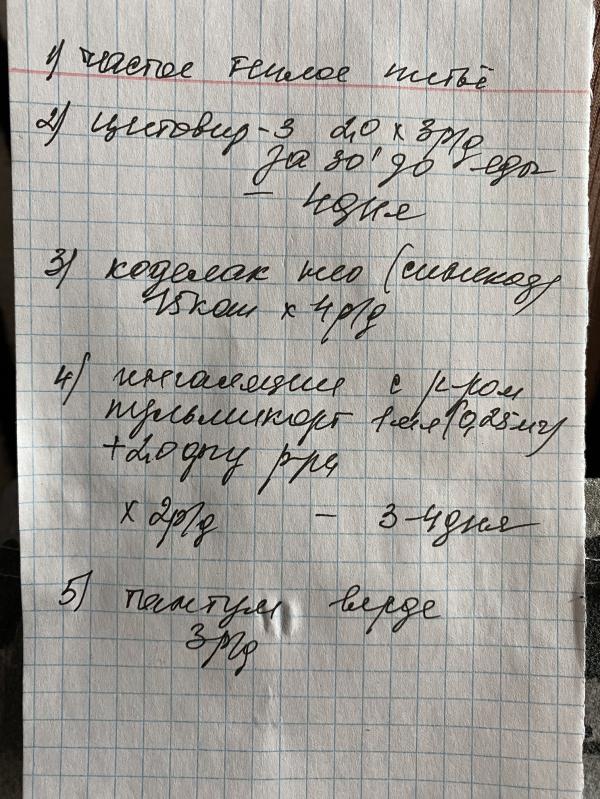 1) частое теплое питьё
2) цитовир-3 2,0 х 3р/д
за 30' до еды
– 4дня
3) коделак нео (синекод)
15кап х 4р/д
4) ингаляции с р-ром
пульмикорт 1мл (0,25мг)
+2,0 физ р-ра
х 2р/д – 3-4дня
5) тантум верде
3р/д